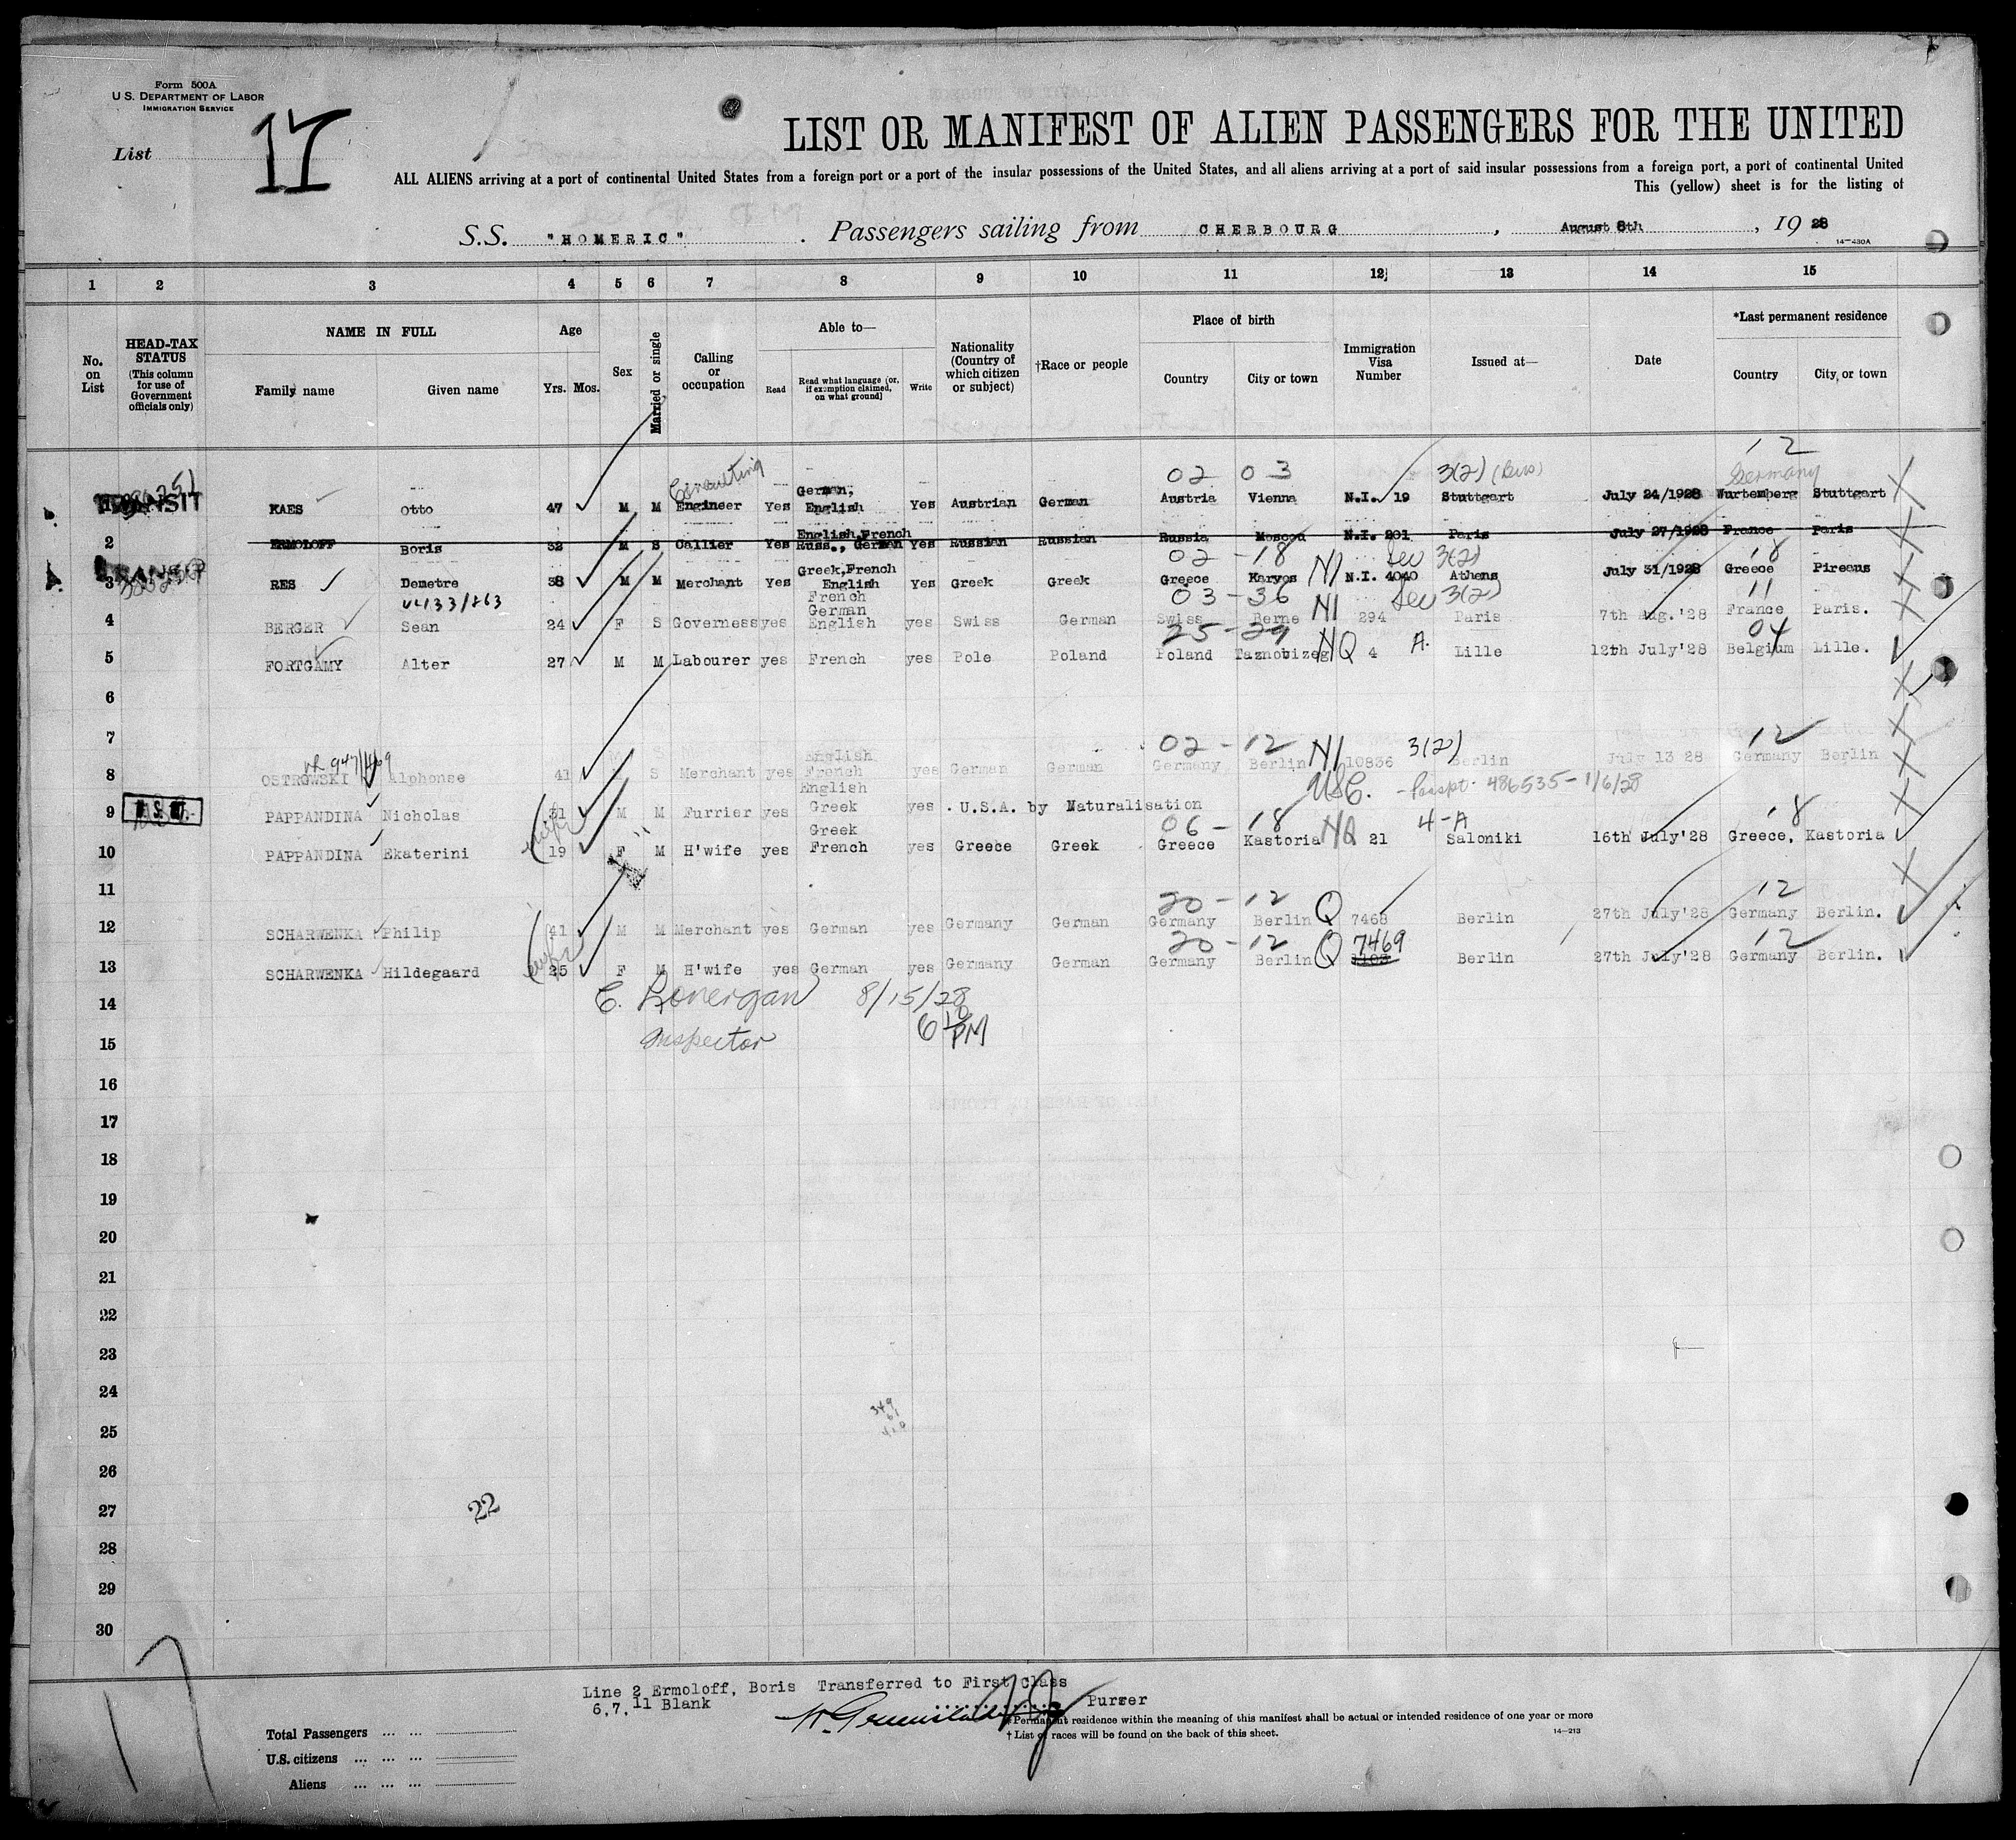 Form 500A
U.S. DEPARTMENT OF LABOR
IMMIGRATION SERVICE
List 17
LIST OR MANIFEST OF ALIEN PASSENGERS FOR THE UNITED
ALL ALIENS arriving at a port of continental United States from a foreign port or a port of the insular possessions of the United States, and all aliens arriving at a port of said insular possessions from a foreign port, a port of continental United
This (yellow) sheet is for the listing of
S.S. "HOMERIC". Passengers sailing from CHERBOURG, August 8th, 1928
14-430A
1 2 3 4 5 6 7 8 9 10 11 12 13 14 15
No. on List
HEAD-TAX STATUS (This column for use of Government officials only)
NAME IN FULL
Family name Given name
Age
Yrs. Mos.
Sex
Married or single
Calling or occupation
Able to—
Read Read what language [or, if exemption claimed, on what ground] Write
Nationality (Country of which citizen or subject)
†Race or people
Place of birth
Country City or town
Immigration Visa Number
Issued at—
Date
*Last permanent residence
Country City or town
02 03 3(2) 12
Consulting Germany
1 TRANSIT KAES Otto 47 M M Engineer Yes German, English Yes Austrian German Austria Vienna N.I. 19 Stuttgart July 24/1928 Wurtemberg Stuttgart
2 ERMOLOFF Boris 32 M S Callier Yes English,French Russ., German Yes Russian Russian Russia Moscou N.I. 201 Paris July 27/1928 France Paris
02 - 18 3(2) 18
3 TRANSIT RES Demetre 38 M M Merchant Yes Greek,French English Yes Greek Greek Greece Karyes NI N.I. 4040 Athens July 31/1928 Greece Pireaus
03 - 36 3(2) 11
4 BERGER Sean 24 F S Governess yes French German English yes Swiss German Swiss Berne NI 294 Paris 7th Aug.'28 France Paris.
25 - 29 04
5 FORTGAMY Alter 27 M M Labourer yes French yes Pole Poland Poland Taznobizeg NQ 4 A. Lille 12th July'28 Belgium Lille.
6
7
02 - 12 3(2) 12
8 OSTROWSKI Alphonse 41 M S Merchant yes English French yes German German Germany Berlin NI 10836 Berlin July 13 28 Germany Berlin
USC. - Passpt. 486535 - 1/6/28
9 PAPPANDINA Nicholas 31 M M Furrier yes English Greek yes U.S.A. by Naturalisation
06 - 18 4-A 18
10 PAPPANDINA Ekaterini wife 19 F M H'wife yes Greek French yes Greece Greek Greece Kastoria NQ 21 Saloniki 16th July'28 Greece, Kastoria
11
20 - 12 12
12 SCHARWENKA Philip 41 M M Merchant yes German yes Germany German Germany Berlin Q 7468 Berlin 27th July'28 Germany Berlin.
20 - 12 7469 12
13 SCHARWENKA Hildegaard wife 25 F M H'wife yes German yes Germany German Germany Berlin Q Berlin 27th July'28 Germany Berlin.
14 C. Lonergan 8/15/28
15 Inspector 6 10 PM
16
17
18
19
20
21
22
23
24
25
26
27 22
28
29
30
Line 2 Ermoloff, Boris Transferred to First Class
6.7. 11 Blank
Purser
Total Passengers ... ...
U.S. citizens ... ... ...
Aliens ... ... ...
*Permanent residence within the meaning of this manifest shall be actual or intended residence of one year or more
† List of races will be found on the back of this sheet.
14-213